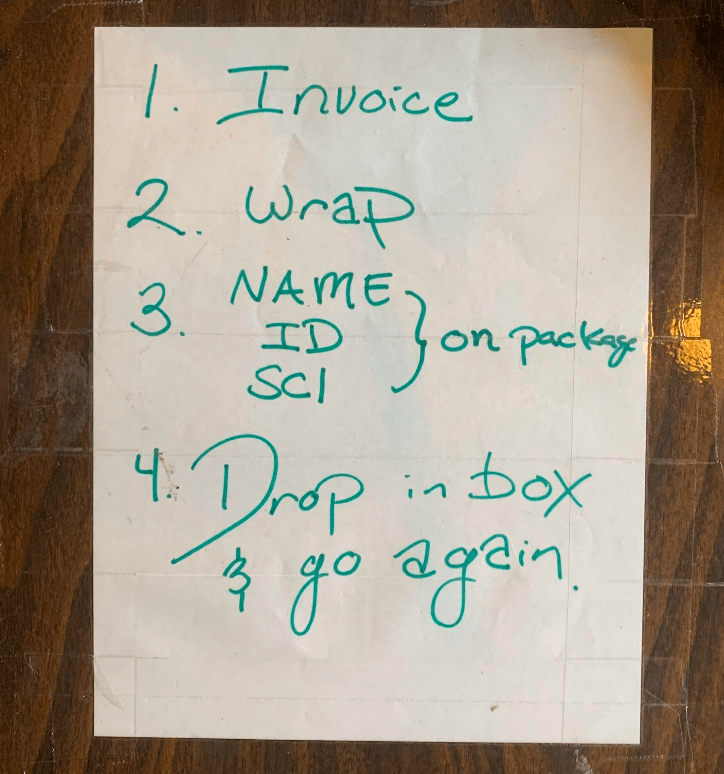 1. Invoice
2. Wrap
3. NAME
ID } on package
SCI
4. Drop in box
& go again.